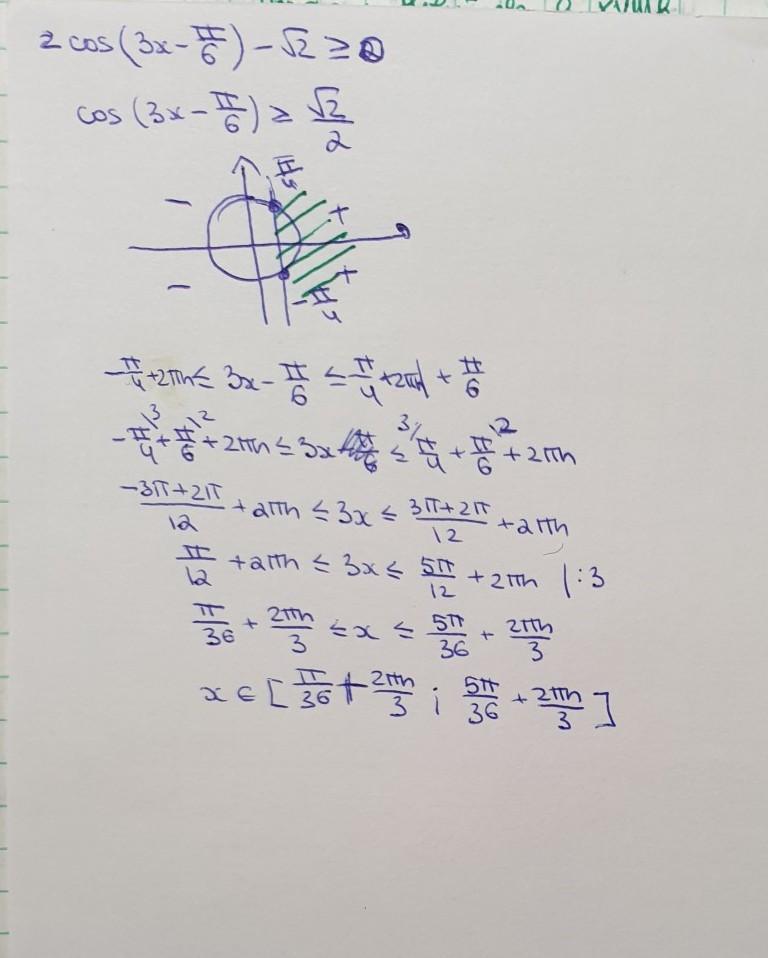 2 cos(3x - π/6) - √2 ≥ 0
cos(3x - π/6) ≥ √2/2
π/4
- +
- +
-π/4
-π/4 + 2πn ≤ 3x - π/6 ≤ π/4 + 2πn | + π/6
-π/4 \3 + π/6 \2 + 2πn ≤ 3x ≤ 3/ π/4 + π/6 \2 + 2πn
(-3π+2π)/12 + 2πn ≤ 3x ≤ (3π+2π)/12 + 2πn
π/12 + 2πn ≤ 3x ≤ 5π/12 + 2πn | :3
π/36 + 2πn/3 ≤ x ≤ 5π/36 + 2πn/3
x ∈ [π/36 + 2πn/3 ; 5π/36 + 2πn/3]